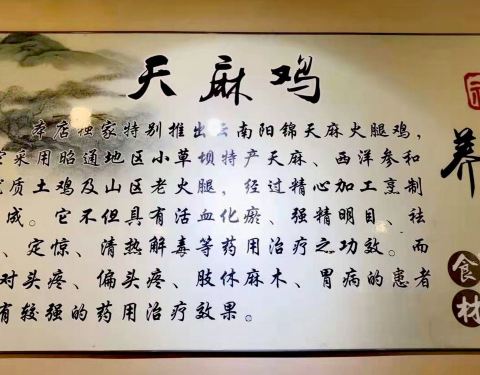 天麻鸡
本店独家特别推出云南阳锦天麻火腿鸡，
采用昭通地区小草坝特产天麻、西洋参和
质土鸡及山区老火腿，经过精心加工烹制
成。它不但具有活血化瘀、强精明目、祛
、定惊、清热解毒等药用治疗之功效。而
对头疼、偏头疼、肢体麻木、胃病的患者
有较强的药用治疗效果。
养
食材